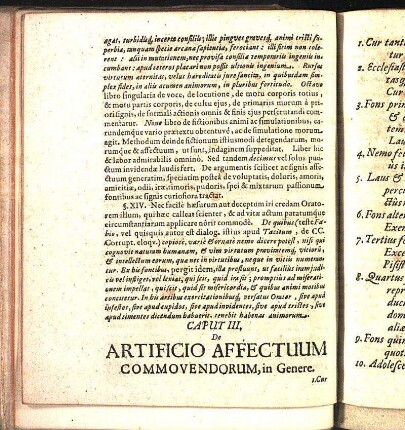 agat, turbidiusq́; incerto consistit; illic pingues gravesq́; animi tristi superbia,
tunquam specie arcana sapientiæ, ferociant: illi seim non tolerent:
alii in mutationem, nec provisa consilia temporariè ingenii incumbant:
apud ceteros placari non possit ultionis ingenium. Rursus
virtutum æternitas, velut hæreditario jure sancita, in quibusdam simplex
fides, in aliis acumen animorum, in pluribus fortitudo. Octavo
libro singularia de voce, de locutione, de motu corporis totius,
& motu partis corporis, de cultu ejus, de primariis morum à priori
signis, de formali actionis omnis & finis ejus perscrutandi commentatur.
Nono libro de fictionibus animi ac simulationibus, earundemque
vario prætextu obtentuve, ac de simulatione morum
agit. Methodum deinde fictionum istiusmodi detegendarum, morumque
& affectuum, ut sunt, indaginem suppeditat. Liber hic
& labor admirabilis omninò. Sed tandem decimus vel solus punctum
invidendæ laudis fert. De argumentis scilicet ac signis affectuum
generatim, speciatim postea de voluptatis, doloris, amoris,
amicitiæ, odii, iræ, timoris, pudoris, spei & mixtarum passionum,
fontibus ac signis curiosiora tractat.
§. XIV. Nec facilè hæsurum aut deceptum iri credam Oratorem
illum, qui hæc calleat scienter, & ad vitæ actum patatumque
circumstantiarum applicare nôrit commodè. De quibus (teste Fabio,
vel quisquis autor est dialog. istius apud Tacitum, de CC.
Corrupt. eloq.) copiosè, variè & ornatè nemo dicere potest, nisi qui
cognovit naturam humanam, & vim virtutum pravitatemq́; vitiorū,
& intellectum eorum, quæ nec in virtutibus, neque in vitiis numerantur.
Ex his fontibus, pergit idem, illa profluunt, ut facilius iram judicis
vel instiget, vel leniat, qui scit, quid ira sit; promptius ad miserationem
impellat, qui scit, quid sit misericordia, & quibus animi motibus
concitetur. In his artibus exercitationibusq́; versatus Orator, sive apud
infestos, sive apud cupidos, sive apud invidentes, sive apud tristes, sive
apud timentes dicendum habuerit, tenebit habenas animorum.
CAPUT III,
De
ARTIFICIO AFFECTUUM
COMMOVENDORUM, in Genere.
1. Cur
1. Cur tant
tur
2. Ecclesiast
tasq́
Cur
3. Fons prim
& q
tem
Lau
4. Nemo fe
mi
5. Laus &
perc
ctius
6. Fons alter
Exer
7. Tertius f
Exc
Pisi
8. Quartus
repr
duc
dom
aliæ
9. Fons quin
quot
10. Adolesce